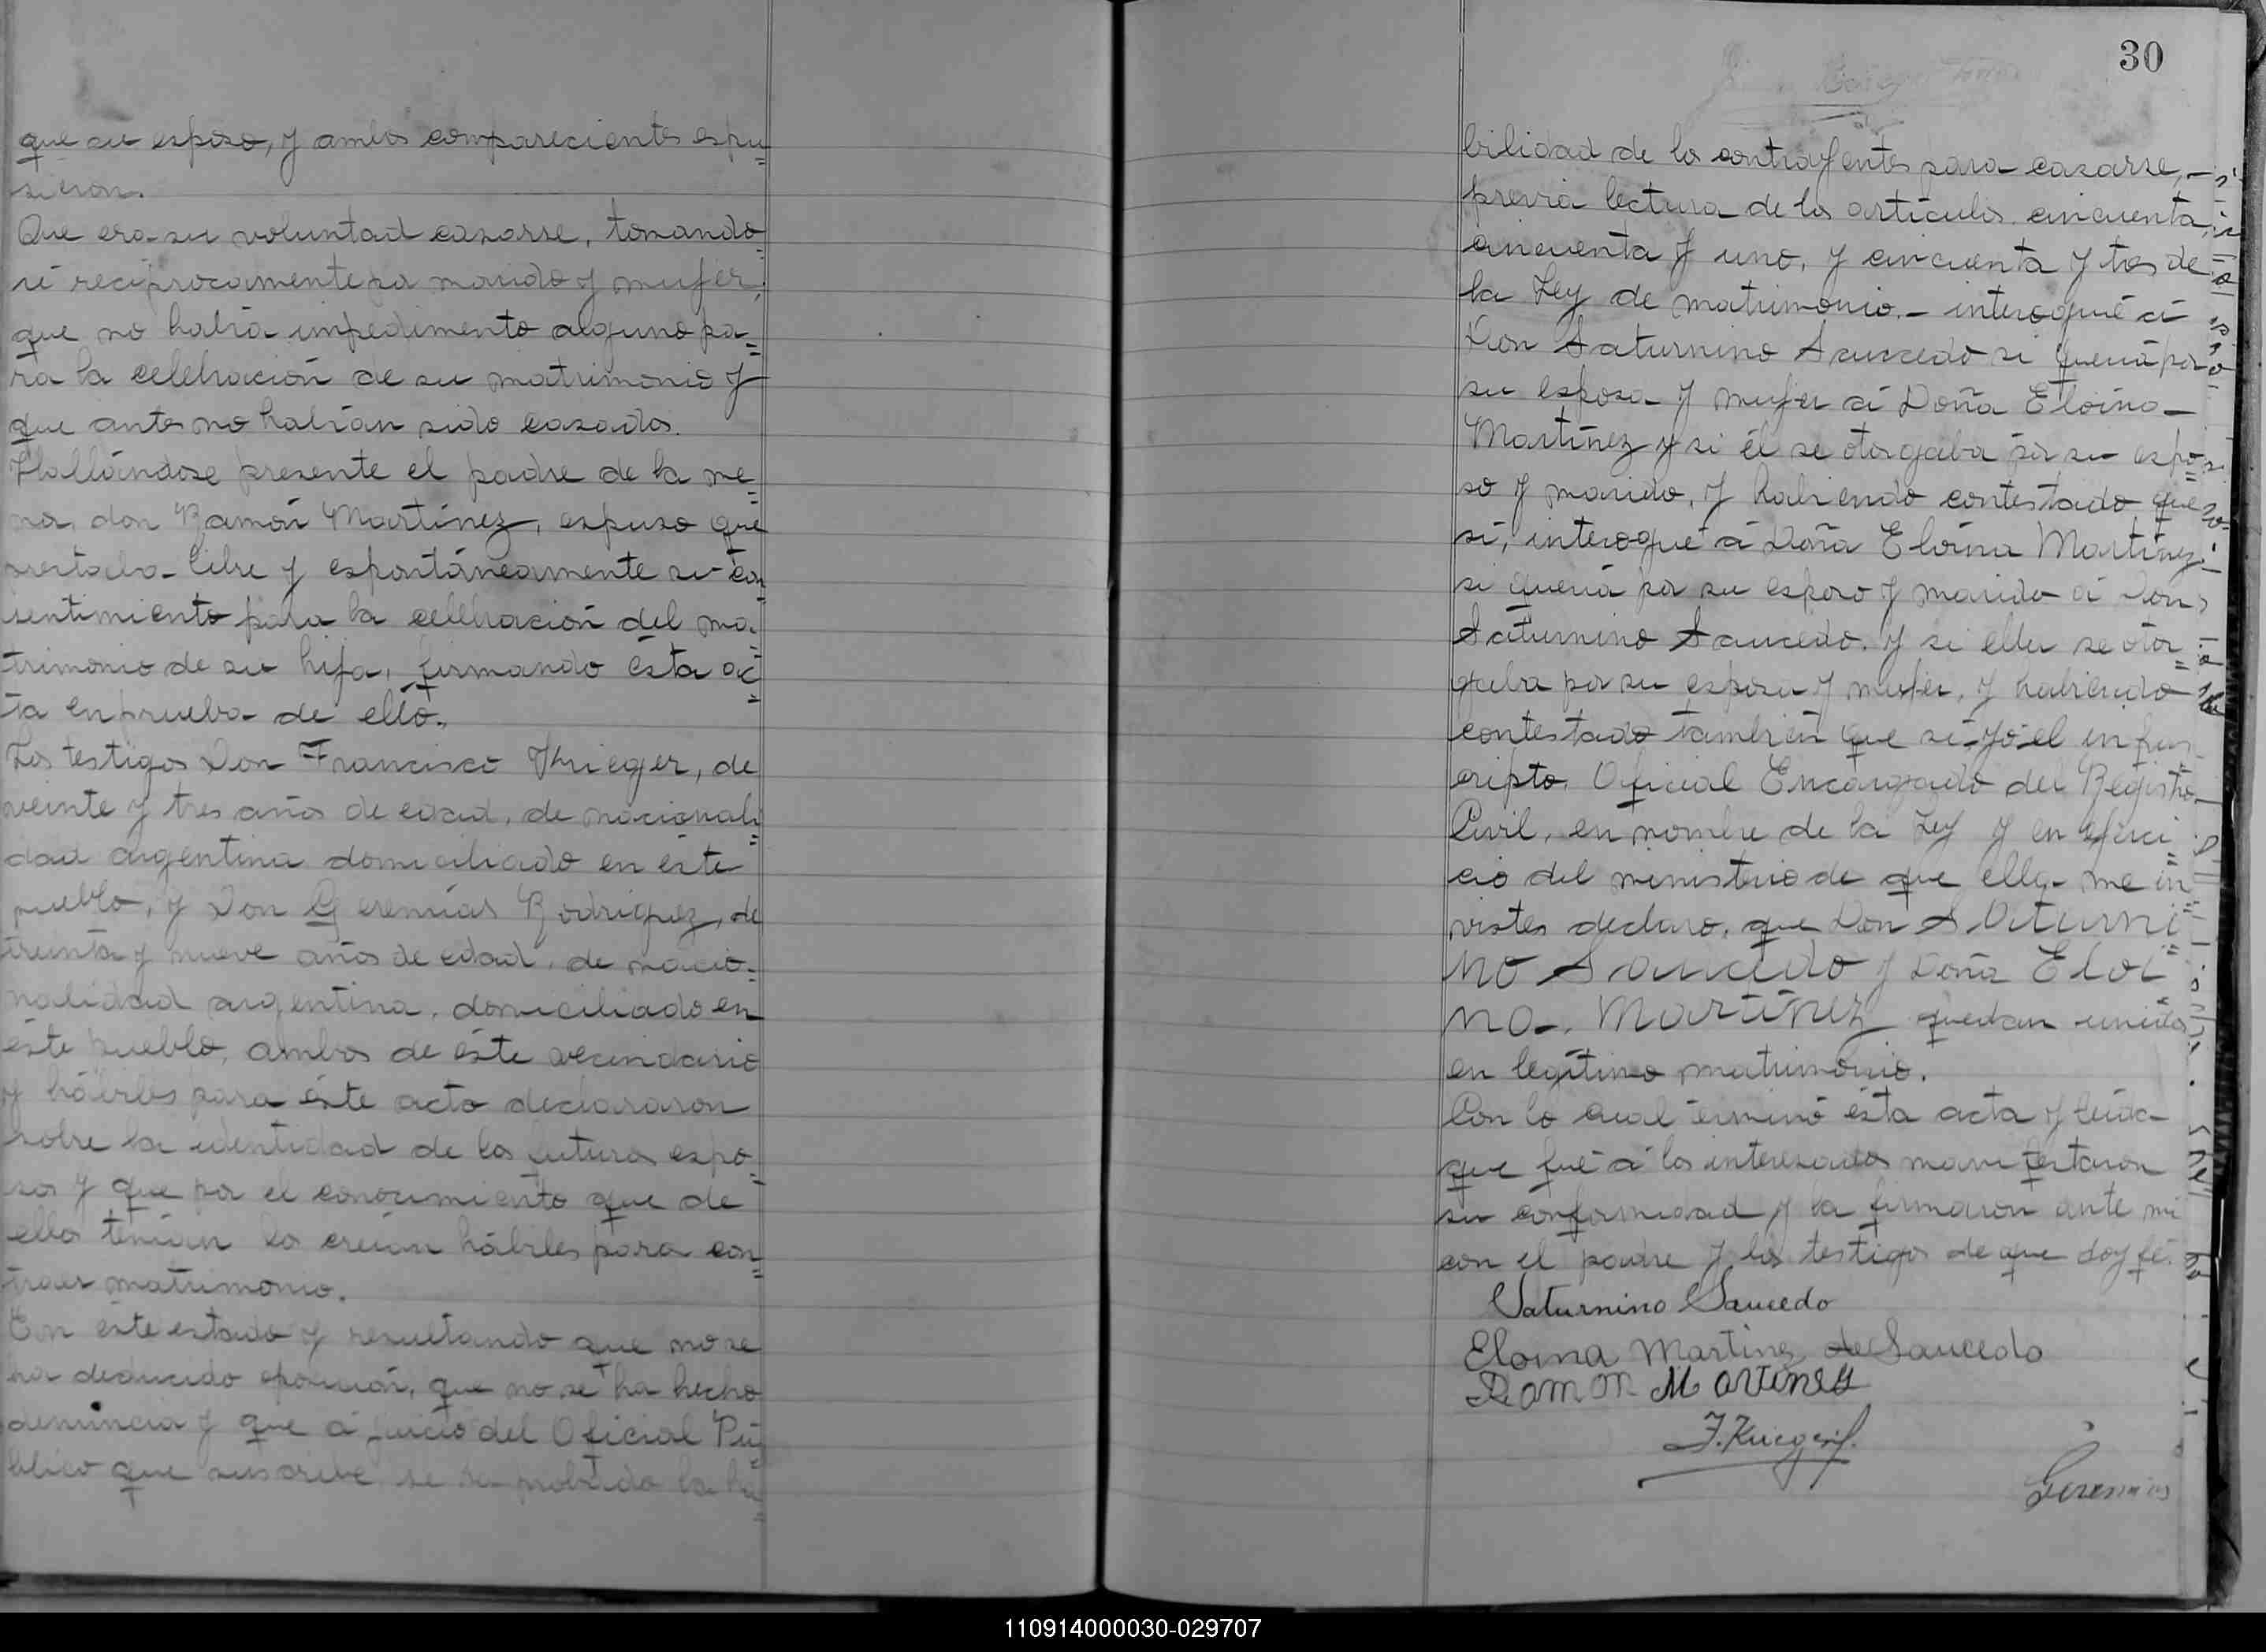 que su esposo, y ambos comparecientes espu=
sieron.
Que era su voluntad casarse, tomando=
sé reciprocamente por marido y mujer,
que no habia impedimento alguno pa=
ra la celebración de su matrimonio y
que antes no habían sido casados.
Hallándose presente el padre de la me=
nor, don Ramón Martínez, espuso que
prestaba libre y espontáneamente su con=
sentimiento para la celebración del ma=
trimonio de su hija, firmando ésta ac=
ta en prueba de ello.
Los testigos Don Francisco Krieger, de
veinte y tres años de edad, de nacionali=
dad argentina domiciliado en éste
pueblo, y Don Geremías Rodriguez, de
treinta y nueve años de edad, de nacio=
nalidad argentina, domiciliado en
éste pueblo, ambos de éste vecindario
y hábiles para éste acto declararon
sobre la identidad de los futuros espo=
sos y que por el conocimiento que de
ellos tenían los creían hábiles para con=
traer matrimonio.
En éste estado y resultando que no se
ha deducido oposición, que no se ha hecho
denuncia y que á juicio del Oficial Pú=
blico que suscribe se ha probado la ha=
30
bilidad de los contrayentes para casarse,
previa lectura de los artículos cincuenta,
cincuenta y uno, y cincuenta y tres de
la Ley de matrimonio.- interogué á
Don Saturnino Saucedo si quería por
su esposa y mujer á Doña Eloina
Martínez y si él se otorgaba por su espo=
so y marido, y habiendo contestado que
sí, interogué á Doña Eloína Martínez
si quería por su esposo y marido á Don
Saturnino Saucedo. y si ella se otor=
gaba por su esposa y mujer, y habiendo
contestado también que sí yo el infras
cripto, Oficial Encargado del Registro
Civil, en nombre de la Ley y en ejerci=
cio del ministerio de que ella me in=
vistes declaro, que Don Saturni=
no Saucedo y Doña Eloi=
na Martínez quedan unidos
en legítimo matrimonio.
Con lo cual terminó ésta acta y leída
que fué á los interesados manifestaron
su conformidad y la firmaron ante mi
con el padre y los testigos de que doy fé.
Saturnino Saucedo
Eloina Martinez de Saucedo
Ramon Martinez
F. Krieger
Geremias
110914000030-029707